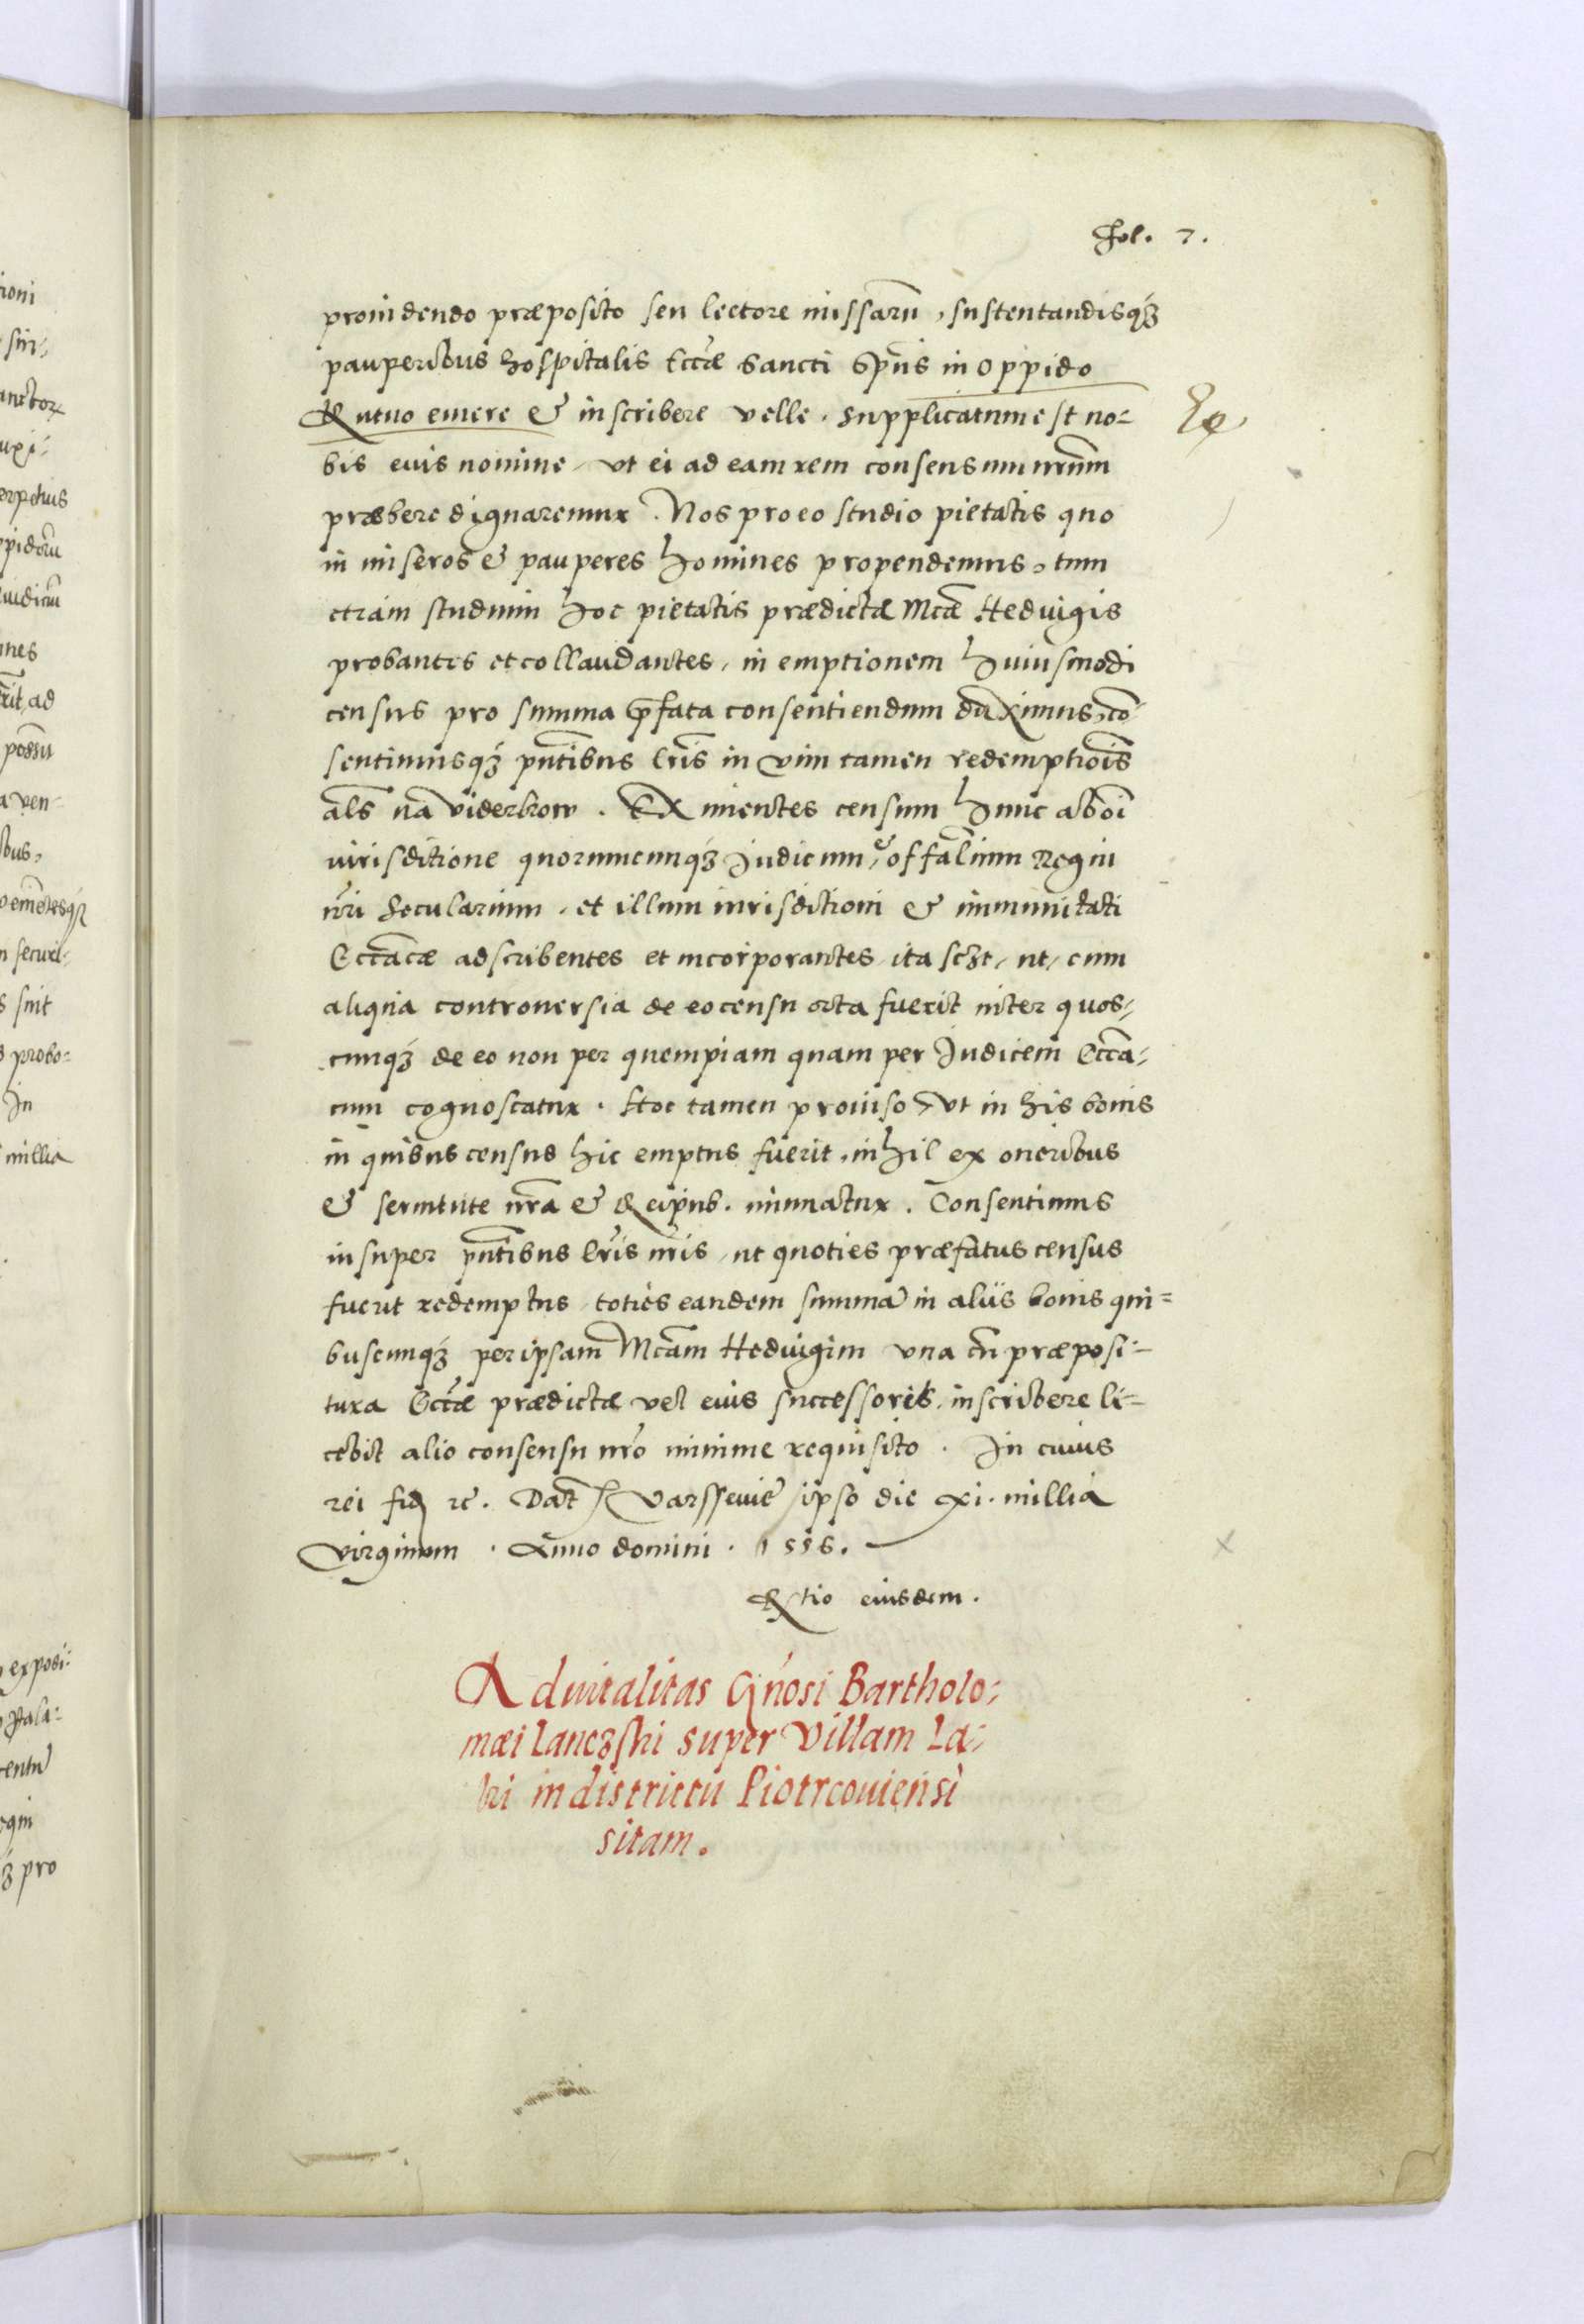 Fol. 7.
prouidendo præposito seu lectore missarū, sustentandisqȝ
pauperibus hospitalis Eccæ Sancti Spūs in oppido
Kutno emere & inscribere velle. Supplicatum est no-
bis euis nomine, vt ei ad eam rem consensum nrum
præbere dignaremur. Nos pro eo studio pietatis quo
in miseros & pauperes homines propendemus, tum
etiam studium hoc pietatis prædictæ Mcæ Heduigis
probantes et collaudantes, in emptionem huiusmodi
census pro summa p̄fata consentiendum duximus, cō-
sentimusqȝ pn̄tibus lris in vim tamen redemptiōis
als na viderkow. Eximentes censum hunc ab oī
iurisditione quorumcumqȝ Judicum, & offalium Regni
nri Secularium, et illum iurisditioni & immunitati
Eccācæ adscribentes et incorporantes, ita sczt, ut, cum
aliqua controuersia de eo censu orta fuerit inter quos-
cumqȝ de eo non per quempiam quam per Judicem Eccā-
cum cognoscatur. Hoc tamen prouiso, vt in his bonis
in quibus census hic emptus fuerit, nihil ex oneribus
& seruitute nra & Reipub. minuatur. Consentimus
insuper pn̄tibus lris nris, ut quoties præfatus census
fuerit redemptus, toties eandem summā in alijs bonis qui=
buscumqȝ per ipsam Mcam Heduigim vna cū præposi-
tura Eccæ prædictæ vel eius successores, inscribere li-
cebit alio consensu nro minime requisito. In cuius
rei fid rc. Dat Varsseuie ipso die xi. millia
virginum. Anno domini. 1556.
Rtio eiusdem.
Aduitalitas Gn̄osi Bartholo-
mæi Lanczski super Villam La-
ki in districtu Piotrcouiensi
sitam.